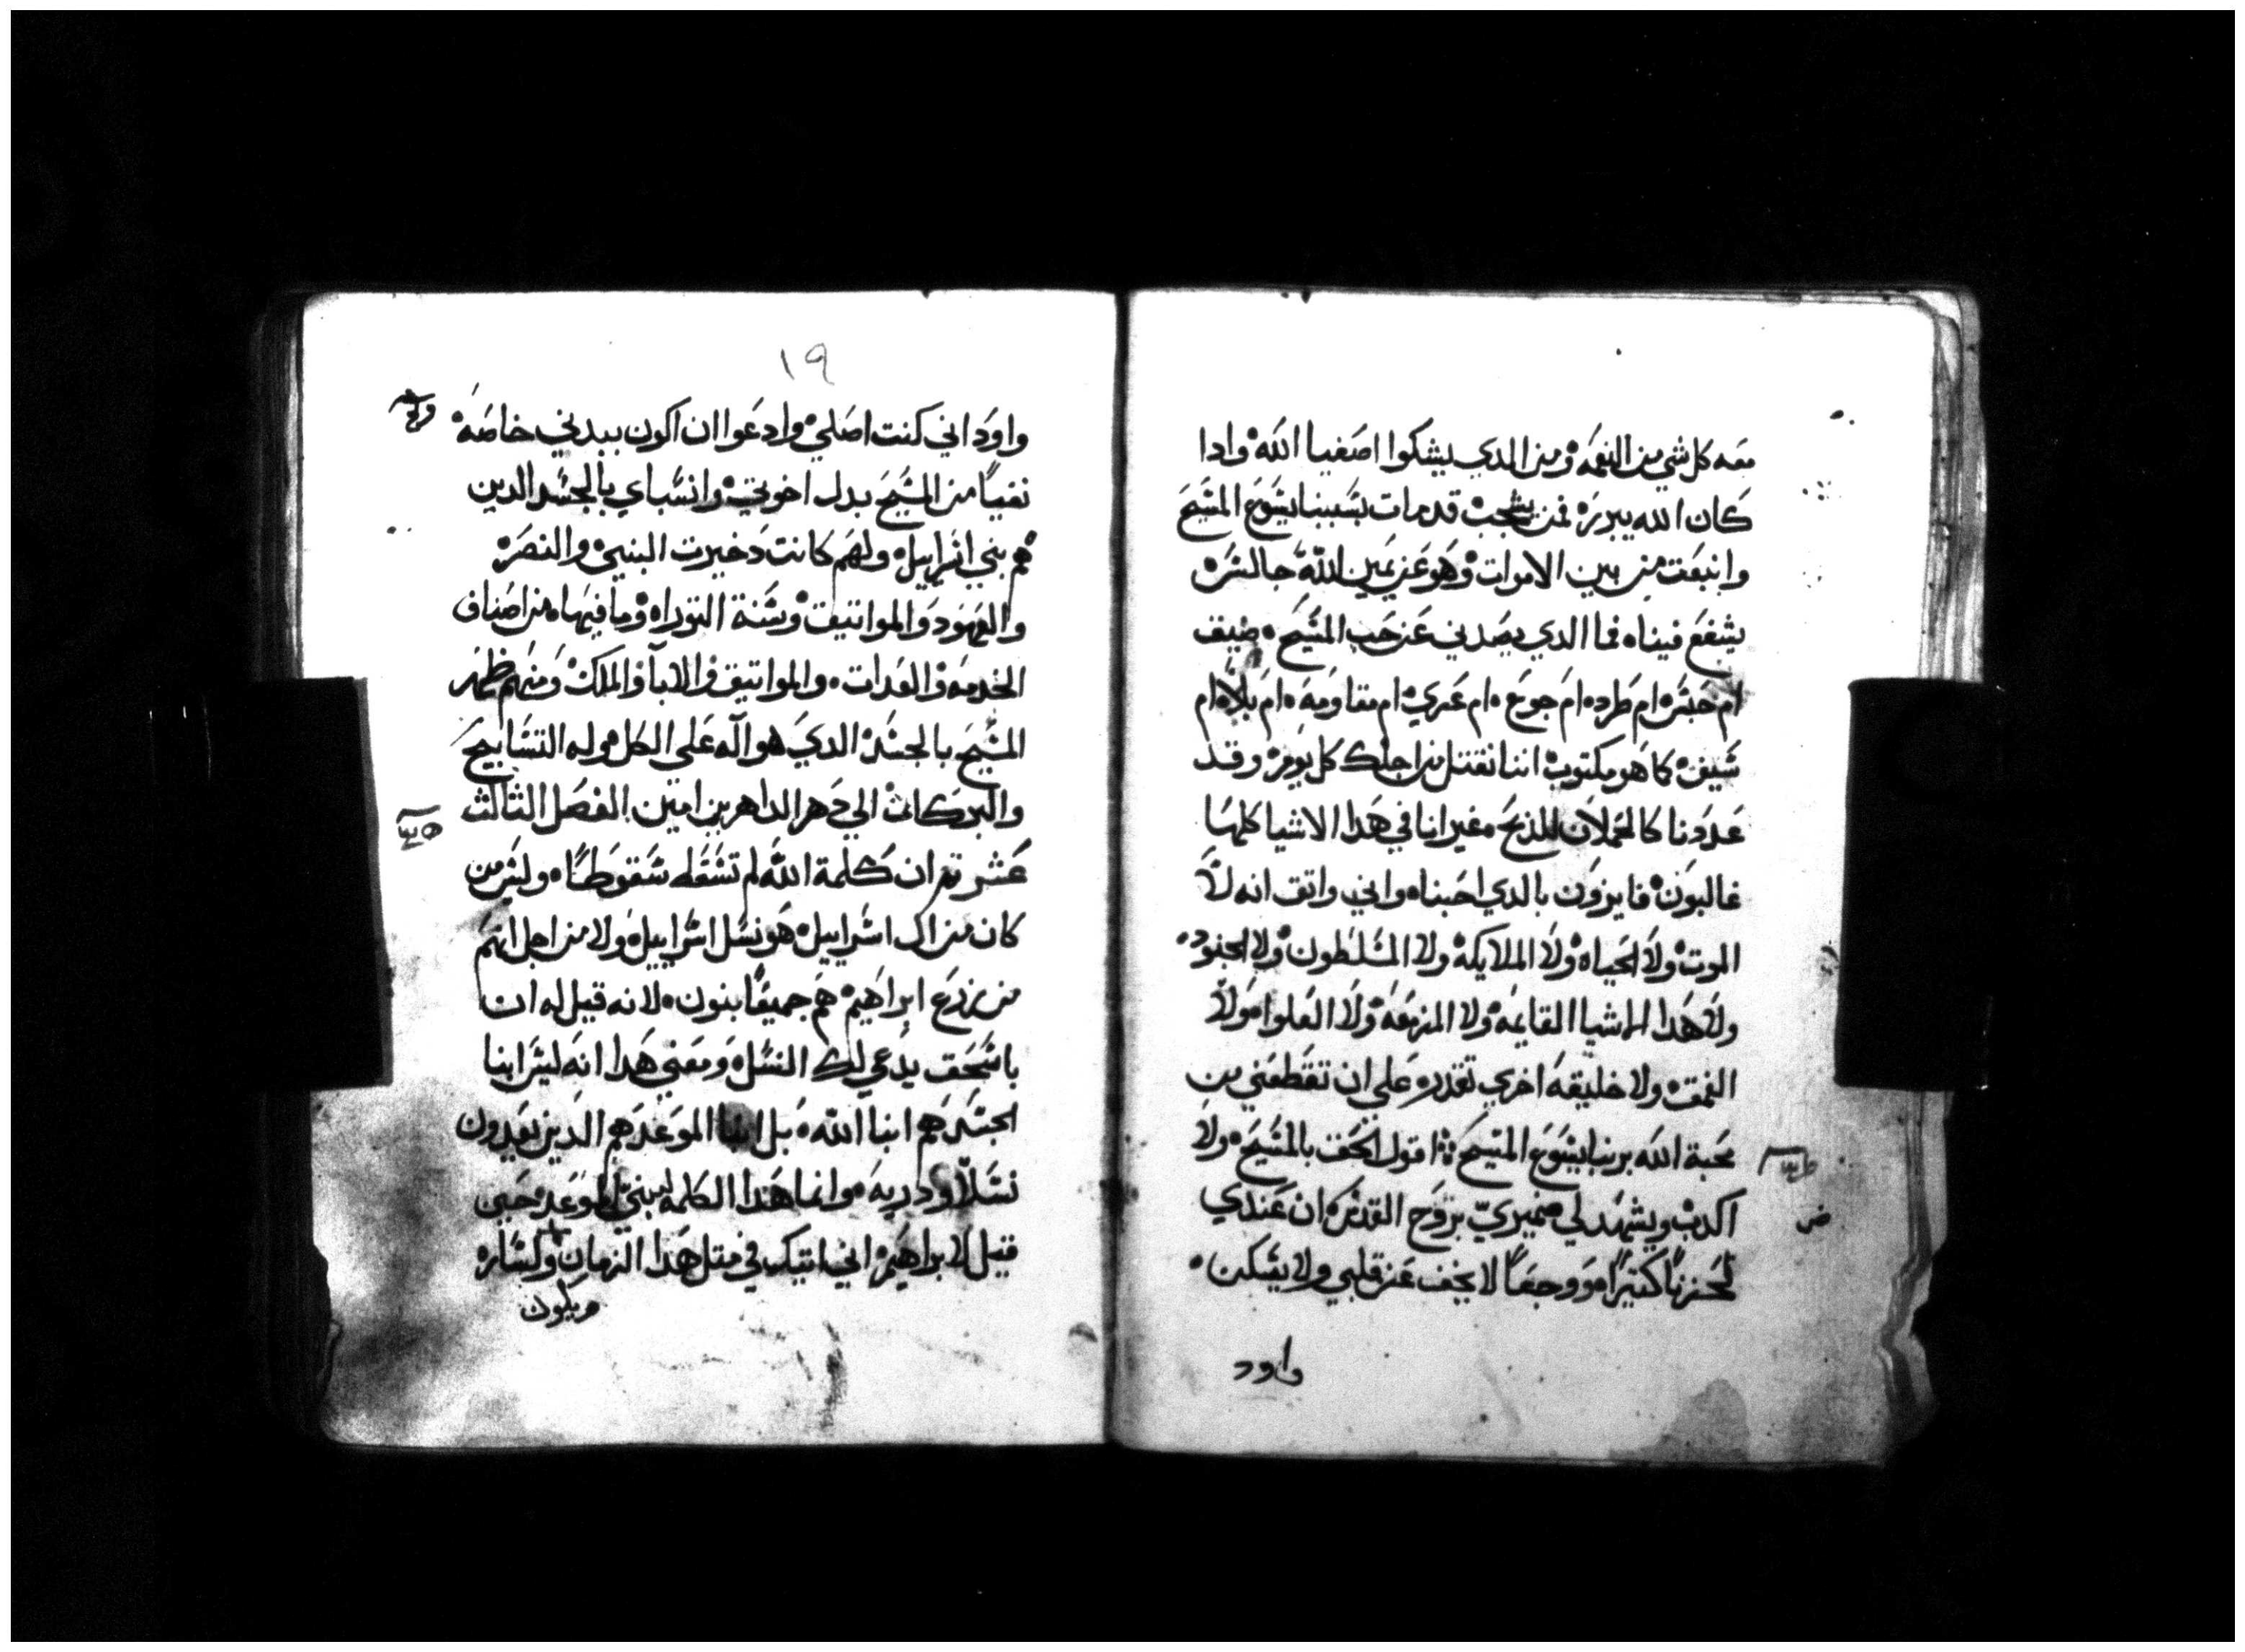 معه كل شي من النعمه ومن الدي يشكوا اصفيا الله وادا
كان الله يبرره فمن يشجب قد مات بسببنا يسوع المسيح
وانبعت من بين الاموات وهو عن يمين الله جالس
يشفع فينا فما الدي يصدني عن حب المسيح ضيف
ام حبس ام طرد ام جوع ام عري ام مقاومه ام بلا ام
سيف كما هو مكتوب اننا نقتل من اجلك كل يوم وقد
عددنا كالحملان للذبح غير انا في هدا الاشيا كلها
غالبون فايزون بالدي احبنا واني واتق انه لا
الموت ولا الحياه ولا الملايكه ولا المسلطون ولا الجنود
ولا هدا الاشيا القايمه ولا المزمعه ولا العلوا ولا
العمق ولا خليقه اخري تقدر على ان تقطعني من
محبة الله بربنا يسوع المسيح اقول الحق بالمسيح ولا
اكدب ويشهد لي ضميري بروح القدس ان عندي
لحزنا كتيرا ووجعا لا يخف عن قلبي ولا يسكن
واود
١٩
واود اني كنت اصلي وادعوا ان اكون ببدني خاصه
نفيا من المسيح بدل اخوتي وانسباي بالجسد الدين
هم بني اسراييل ولهم كانت دخيرت البني والنصره
والعهود والمواتيق وسنة التوراه وما فيها من اصناف
الخدمه والعدات والمواتيق والابا والملك ومنهم ظهر
المسيح بالجسد الدي هو اله على الكل وله التسابيح
والبركات الي دهر الداهرين امين الفصل الثالث
عشر ان كلمة الله لم تسقط سقوطا وليس من
كان من ال اسراييل هو نسل اسراييل ولا من اجل انهم
من زرع ابراهيم هم جميعا بنون لانه قيل له ان
باسحق يدعي لك النسل ومعني هدا انه ليس ابنا
الجسد هم ابنا الله بل ابنا الموعد هم الدين يعدون
نسلا ودريه وانما هدا الكلمه لبني الموعد حين
قيل لابراهيم اني اتيك في متل هدا الزمان ولساره
ويكون